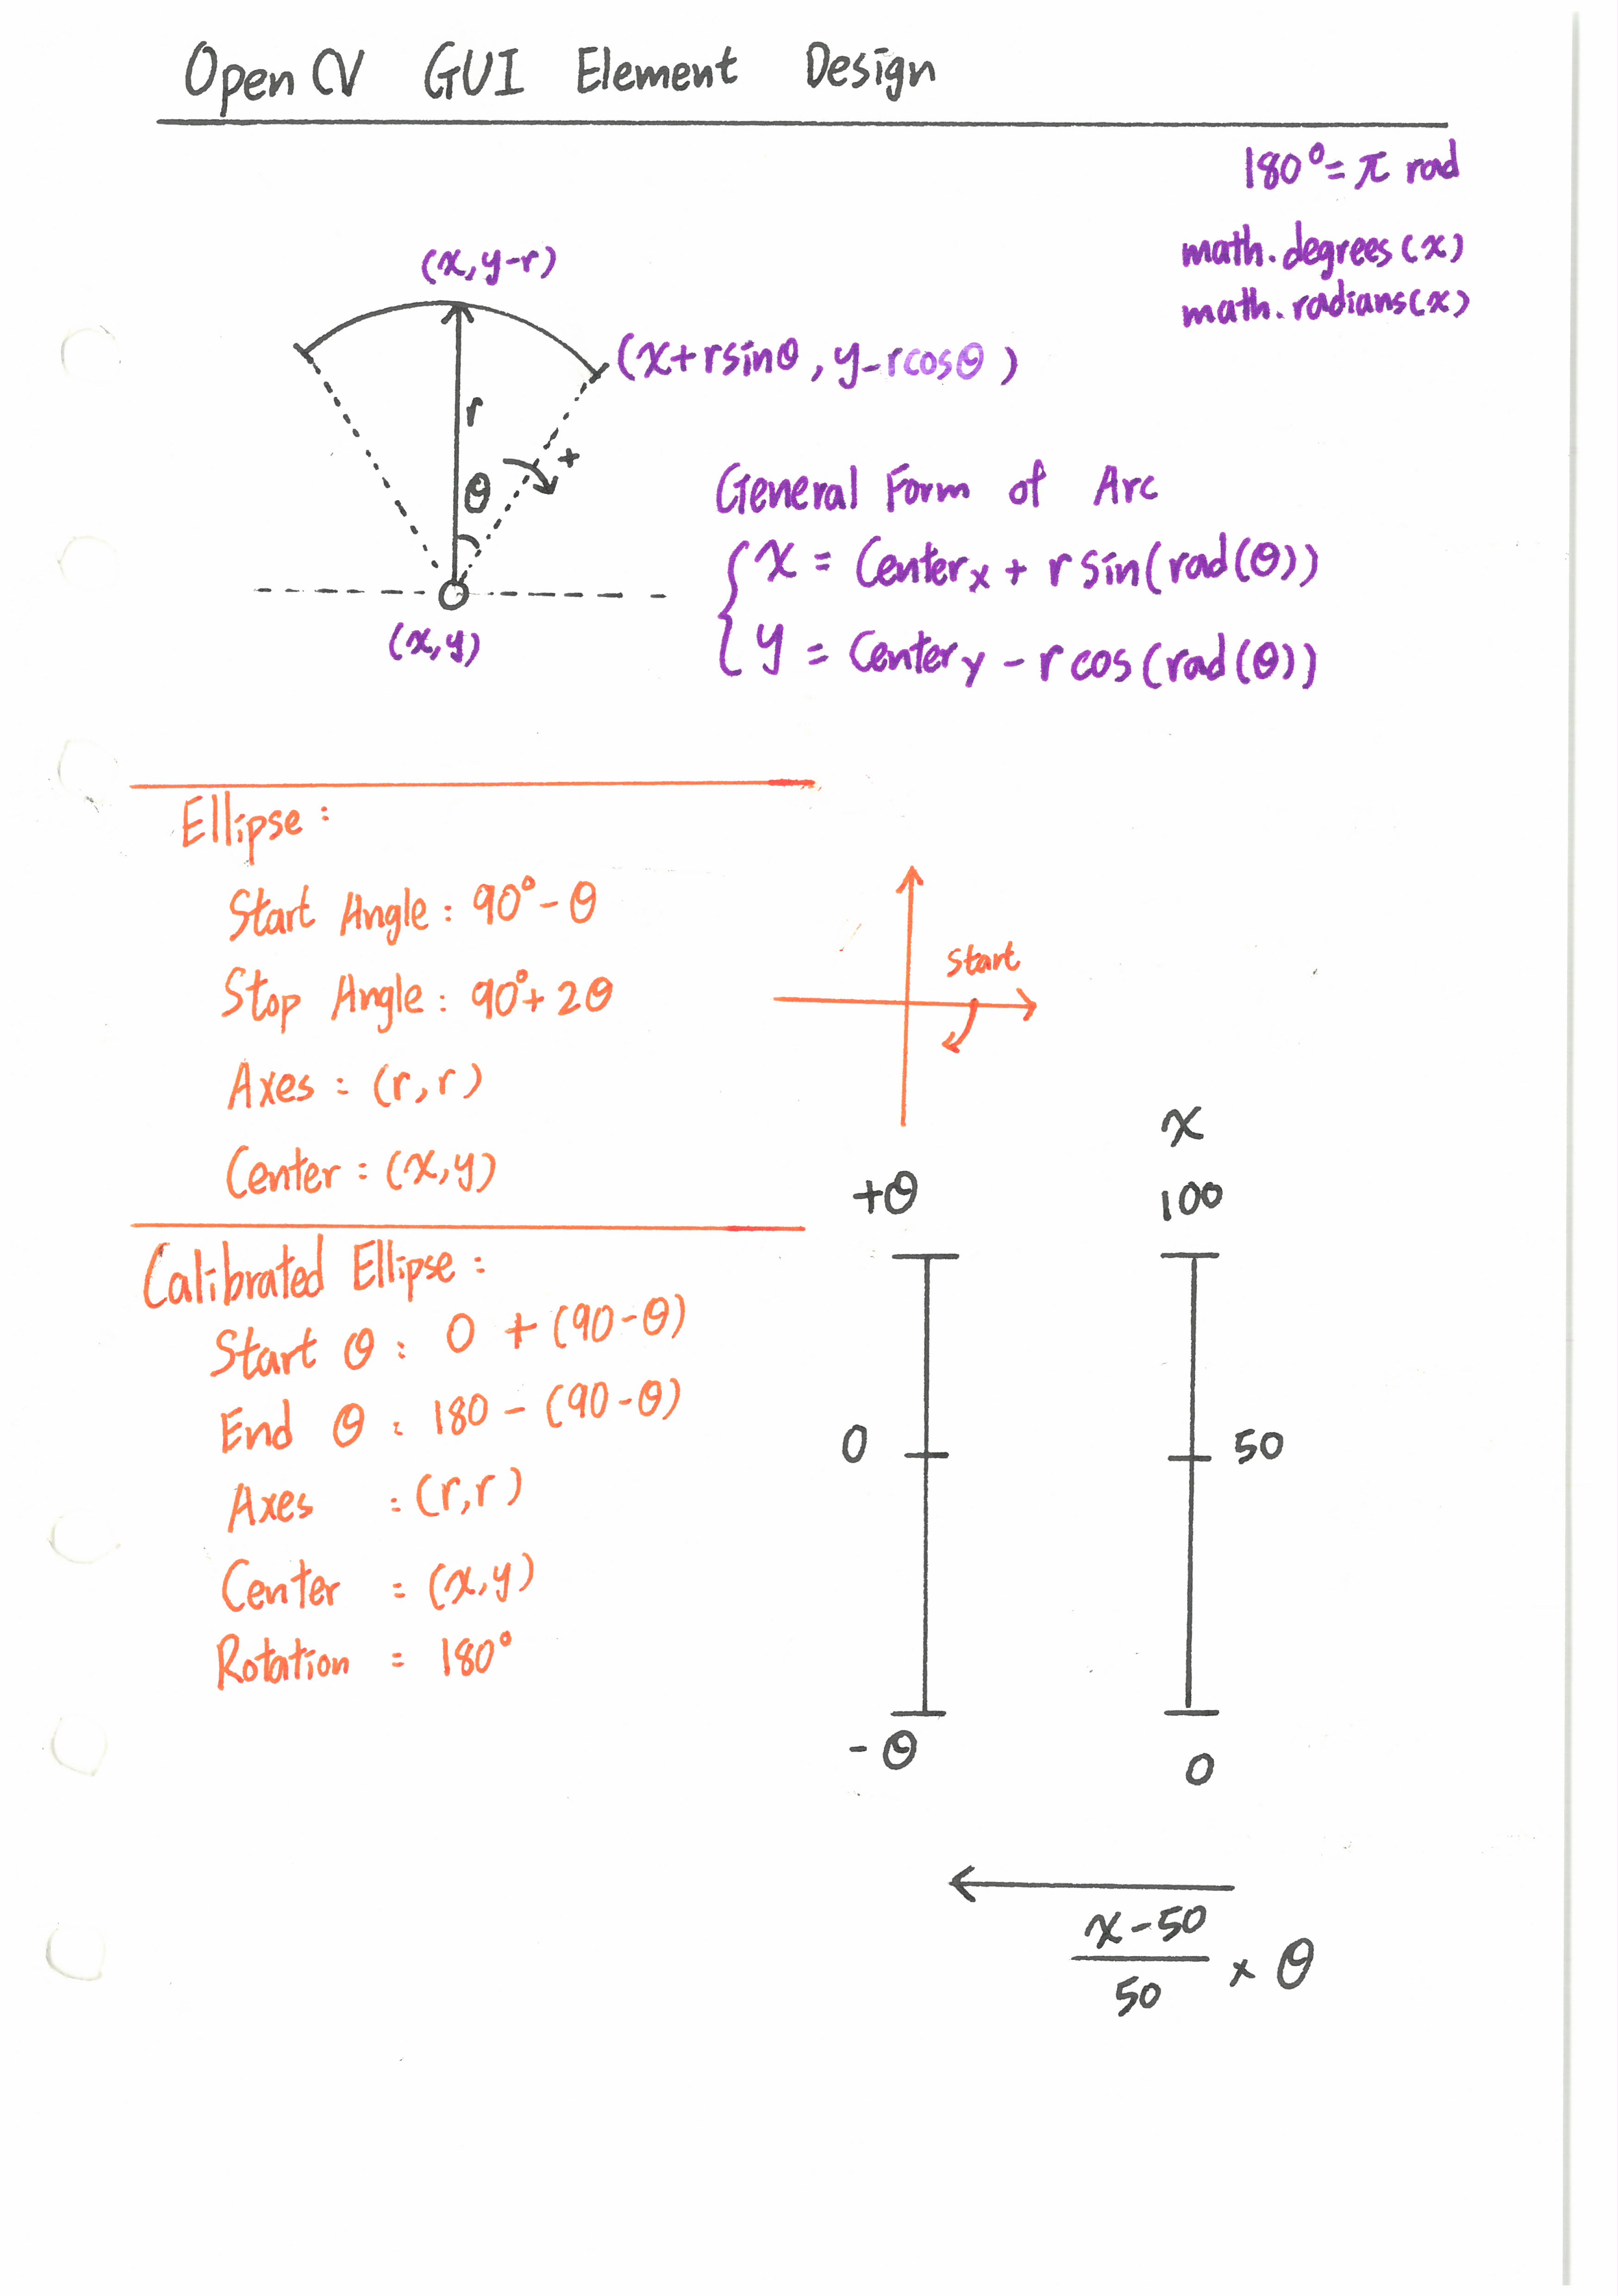 Open CV GUI Element Design
180° = π rad
math.degrees(x)
math.radians(x)
(x, y-r)
(x+rsinθ, y-rcosθ)
r
+
θ
(x,y)
General Form of Arc
x = Centerx + r sin(rad(θ))
y = Centery - r cos(rad(θ))
Ellipse:
Start Angle: 90° - θ
Stop Angle: 90°+ 2θ
Axes: (r,r)
Center: (x,y)
start
Calibrated Ellipse:
Start θ: 0 + (90-θ)
End θ: 180 - (90-θ)
Axes :(r,r)
Center =(x,y)
Rotation = 180°
x
+θ 100
0 50
-θ 0
x-50
50
× θ